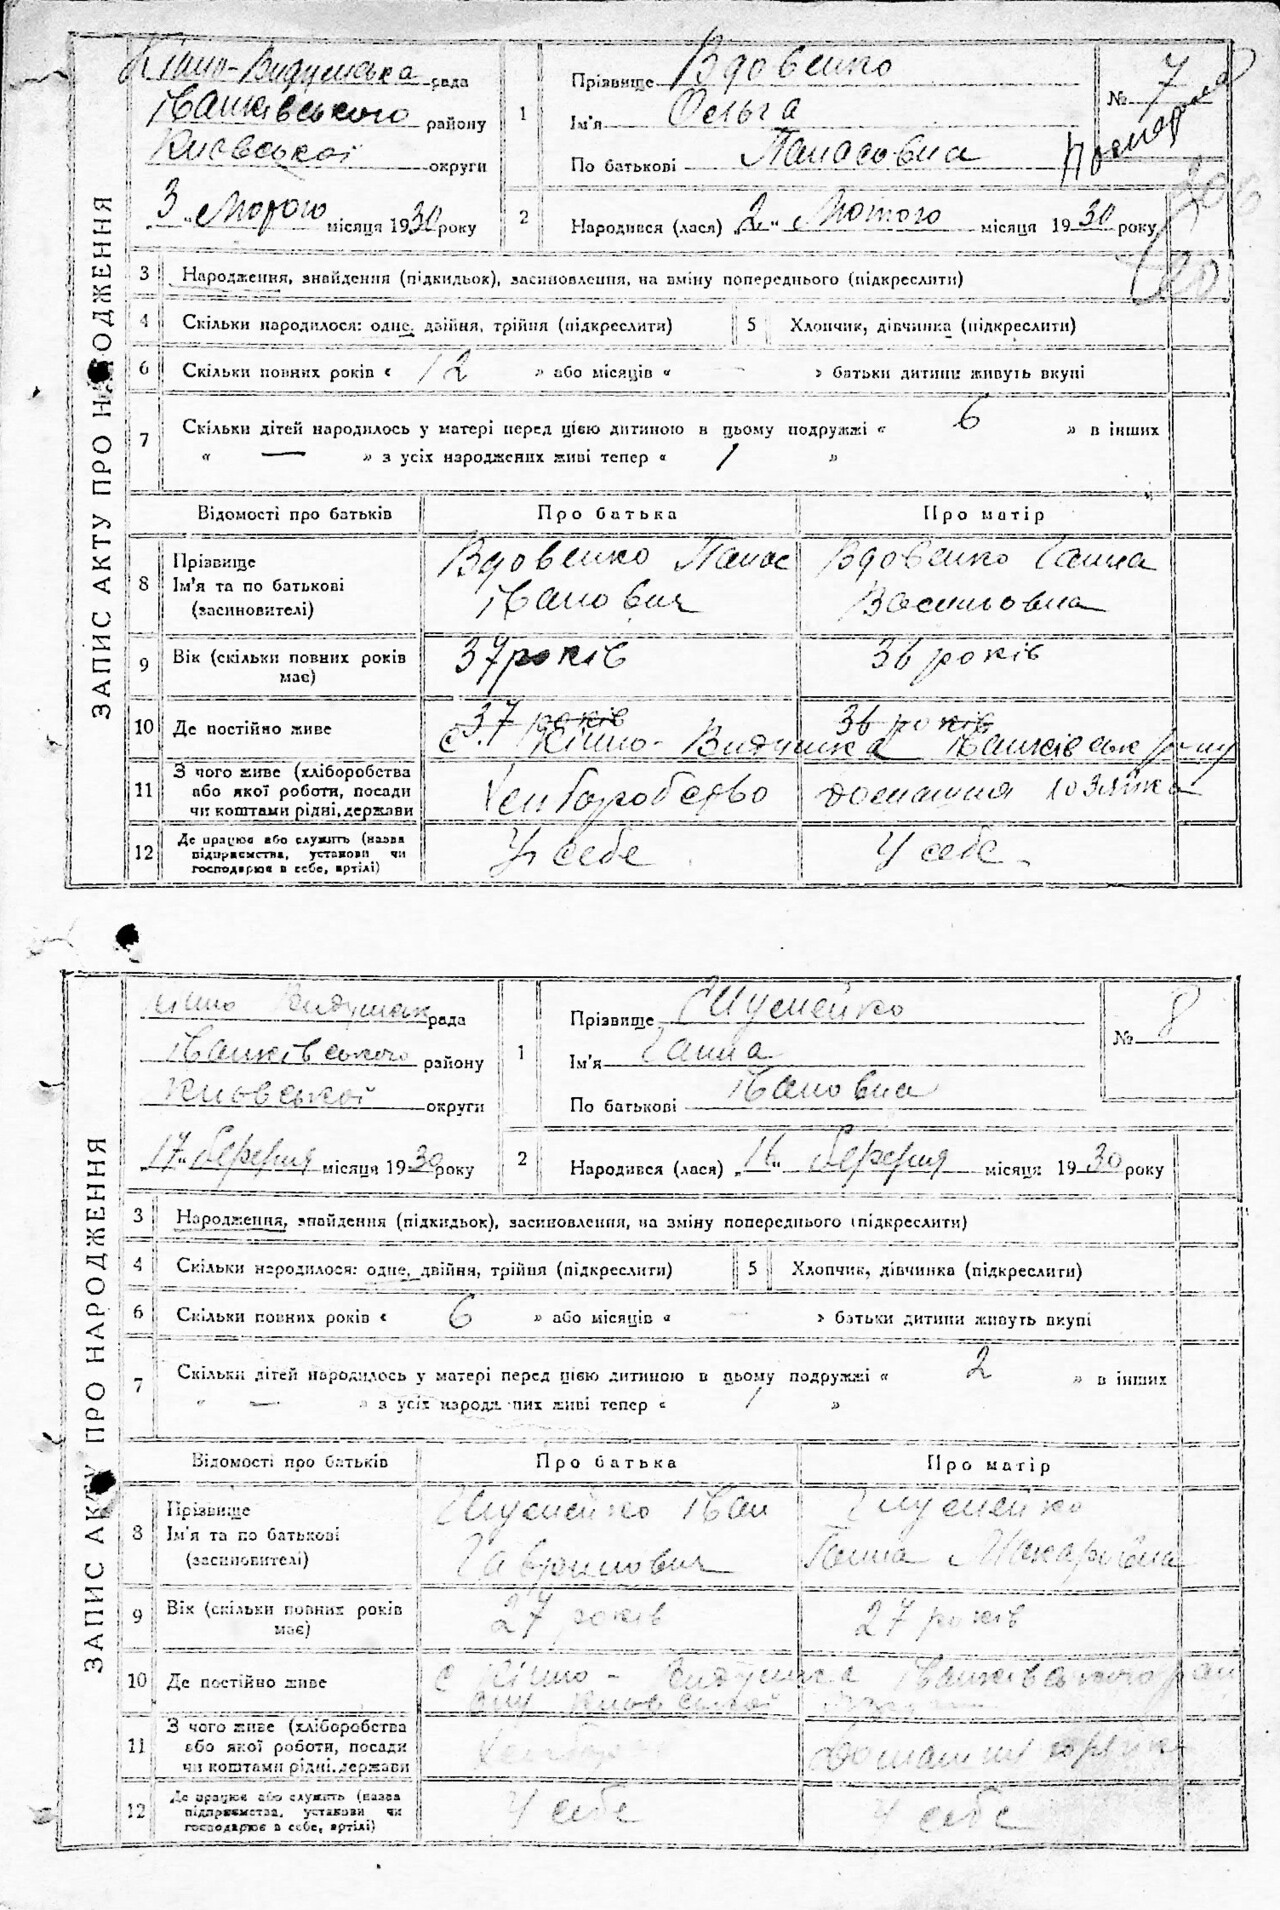 ЗАПИС АКТУ ПРО НАРОДЖЕННЯ
Кінно-Видумська рада
Іванківського району
Київської округи
3 „ Лютого місяця 1930 року
1
Прізвище Вдовенко
Ім'я Ольга
По батькові Панасовна
№ 7
2
Народився (лася) „2“ Лютого місяця 1930 року
3 Народження, знайдення (підкидьок), засиновлення, на зміну попереднього (підкреслити)
4 Скільки народилося: одне, двійня, трійня (підкреслити) 5 Хлопчик, дівчинка (підкреслити)
6 Скільки повних років « 12 » або місяців « — » батьки дитини живуть вкупі
7 Скільки дітей народилось у матері перед цією дитиною в цьому подружжі « 6 » в інших
« — » з усіх народжених живі тепер « 1 »
Відомості про батьків Про батька Про матір
8 Прізвище Ім'я та по батькові (засиновителі)
Вдовенко Панас Вдовенко Ганна
Іванович Васильовна
9 Вік (скільки повних років має) 37 років 36 років
10 Де постійно живе 37 років 36 років
с. Кінно-Видумка Іванківськ
11 З чого живе (хліборобства або якої роботи, посади чи коштами рідні, держави Хліборобство домашня хозяйка
12 Де працює або служить (назва підприємства, установи чи господарює в себе, артілі) У себе У себе
ЗАПИС АКТУ ПРО НАРОДЖЕННЯ
Кінно Видумськ рада
Іванківського район
Київської округи
„17“ березня місяця 1930 року
1
Прізвище Шумейко
Ім'я Ганна
По батькові Івановна
№ 8
2
Народився (лася) „16“ березня місяця 1930 року
3 Народження, знайдення (підкидьок), засиновлення, на зміну попереднього (підкреслити)
4 Скільки народилося: одне, двійня, трійня (підкреслити) 5 Хлопчик, дівчинка (підкреслити)
6 Скільки повних років « 6 » або місяців « — » батьки дитини живуть вкупі
7 Скільки дітей народилось у матері перед цією дитиною в цьому подружжі « 2 » в інших
« — » з усіх народжених живі тепер « 1 »
Відомості про батьків Про батька Про матір
8 Прізвище Ім'я та по батькові (засиновителі)
Шумейко Іван Шумейко
Гаврилович Ганна Макарівна
9 Вік (скільки повних років має) 27 років 27 років
10 Де постійно живе с Кінно-Видумка Іванківського рай
ону Київської
11 З чого живе (хліборобства або якої роботи, посади чи коштами рідні, держави домашня
12 Де працює або служить (назва підприємства, установи чи господарює в себе, артілі) У себе У себе